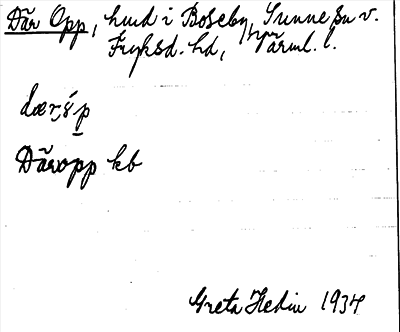 Där Opp, hmd i Boseby, Sunne sn v.
Fryksd. hd, Värml. l.
dær,ṓp
Däropp kb
Greta Hedin 1934